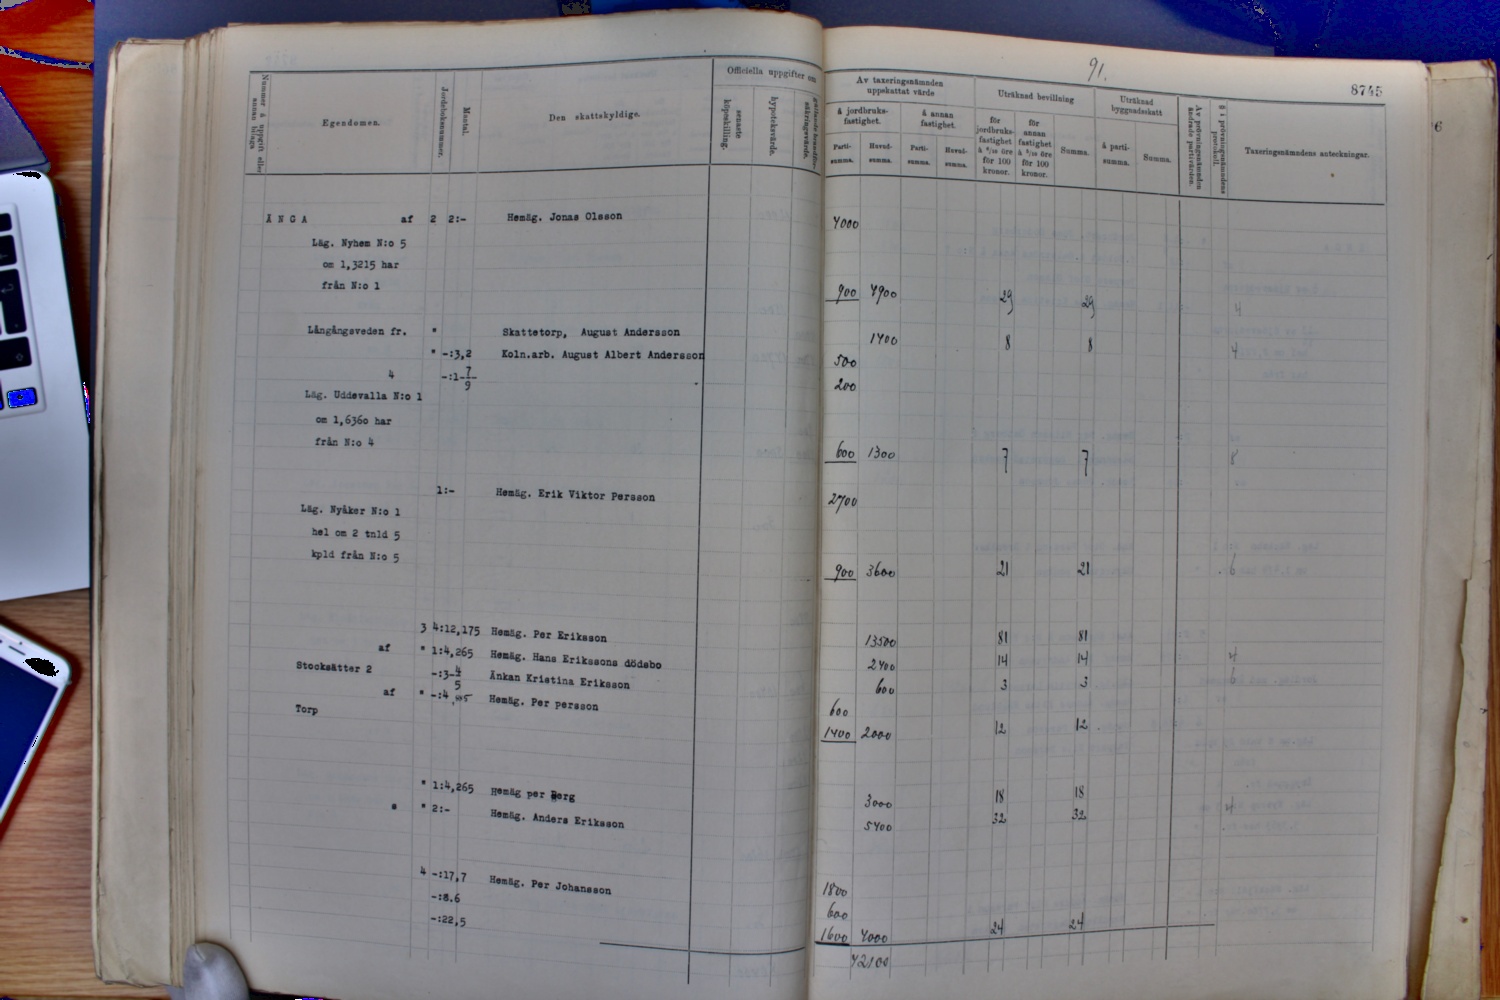 91.
8745
Nummer å uppgift eller annan bilaga
Egendomen.
Jordeboksnummer.
Mantal.
Den skattskyldige.
Officiella uppgifter om
senaste köpeskilling.
hypoteksvärde.
Av taxeringsnämnden uppskattat värde
å jordbruksfastighet.
å annan fastighet.
Parti-summa.
Huvud-summa.
Parti-summa.
Huvud-summa.
Uträknad bevillning
för jordbruksfastighet å 6/10 öre för 100 kronor.
för annan fastighet å 5/10 öre för 100 kronor.
Summa.
Uträknad byggnadsskatt
å parti-summa.
Summa.
Av prövningsnämnden ändrade partivärden.
§ i prövningsnämndens protokoll.
Taxeringsnämndens anteckningar.
6
ÄNGA af 2 2:- Hemäg. Jonas Olsson 4000
Läg. Nyhem N:o 5
om 1,3215 har
från N:o 1 900 4900 29 29 4
Långängsveden fr. " Skattetorp, August Andersson 1400 8 8
" -:3,2 Koln.arb. August Albert Andersson 500 4
4 -:1-7/9 200
Läg. Uddevalla N:o 1
om 1,6360 har
från N:o 4 600 1300 7 7 8
1:- Hemäg. Erik Viktor Persson 2700
Läg. Nyåker N:o 1
hel om 2 tnld 5
kpld från N:o 5 900 3600 21 21 6
3 4:12,175 Hemäg. Per Eriksson 13500 81 81
af " 1:4,265 Hemäg. Hans Erikssons dödsbo 2400 14 14 4
Stocksätter 2 -:3-4/5 Änkan Kristina Eriksson 600 3 3 6
af " -:4 Hemäg. Per persson 600
Torp 1400 2000 12 12
" 1:4,265 Hemäg per Berg 3000 18 18 4
" " 2:- Hemäg. Anders Eriksson 5400 32 32
4 -:17,7 Hemäg. Per Johansson 1800
-:8.6 600
-:22,5 1600 4000 24 24
42100